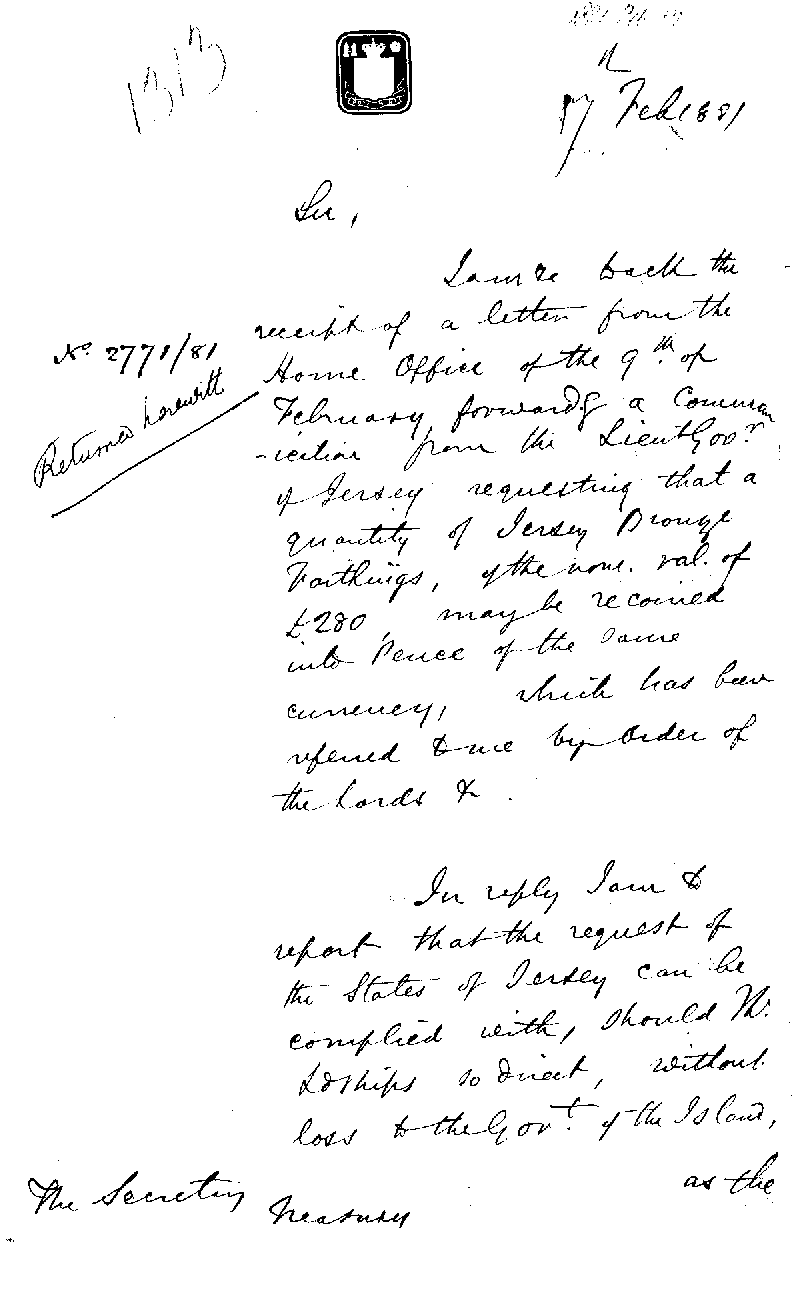 1313
17th Feb 1881
Sir,
I am to ack the
receipt of a letter from the
No. 2771/81
Home Office of the 9th of
Returned herewith
February forwardg a Commun
-ication from the Lieut Govr
of Jersey requesting that a
quantity of Jersey Bronze
Farthings, of the nom. val. of
£280, may be recoined
into Pence of the same
currency, which has been
referred to me by Order of
the Lords &
In reply I am to
report that the request of
the States of Jersey can be
complied with, should Th.
Ldships so direct, without
loss to the Govt. of the Island,
as the
The Secretary
Treasury